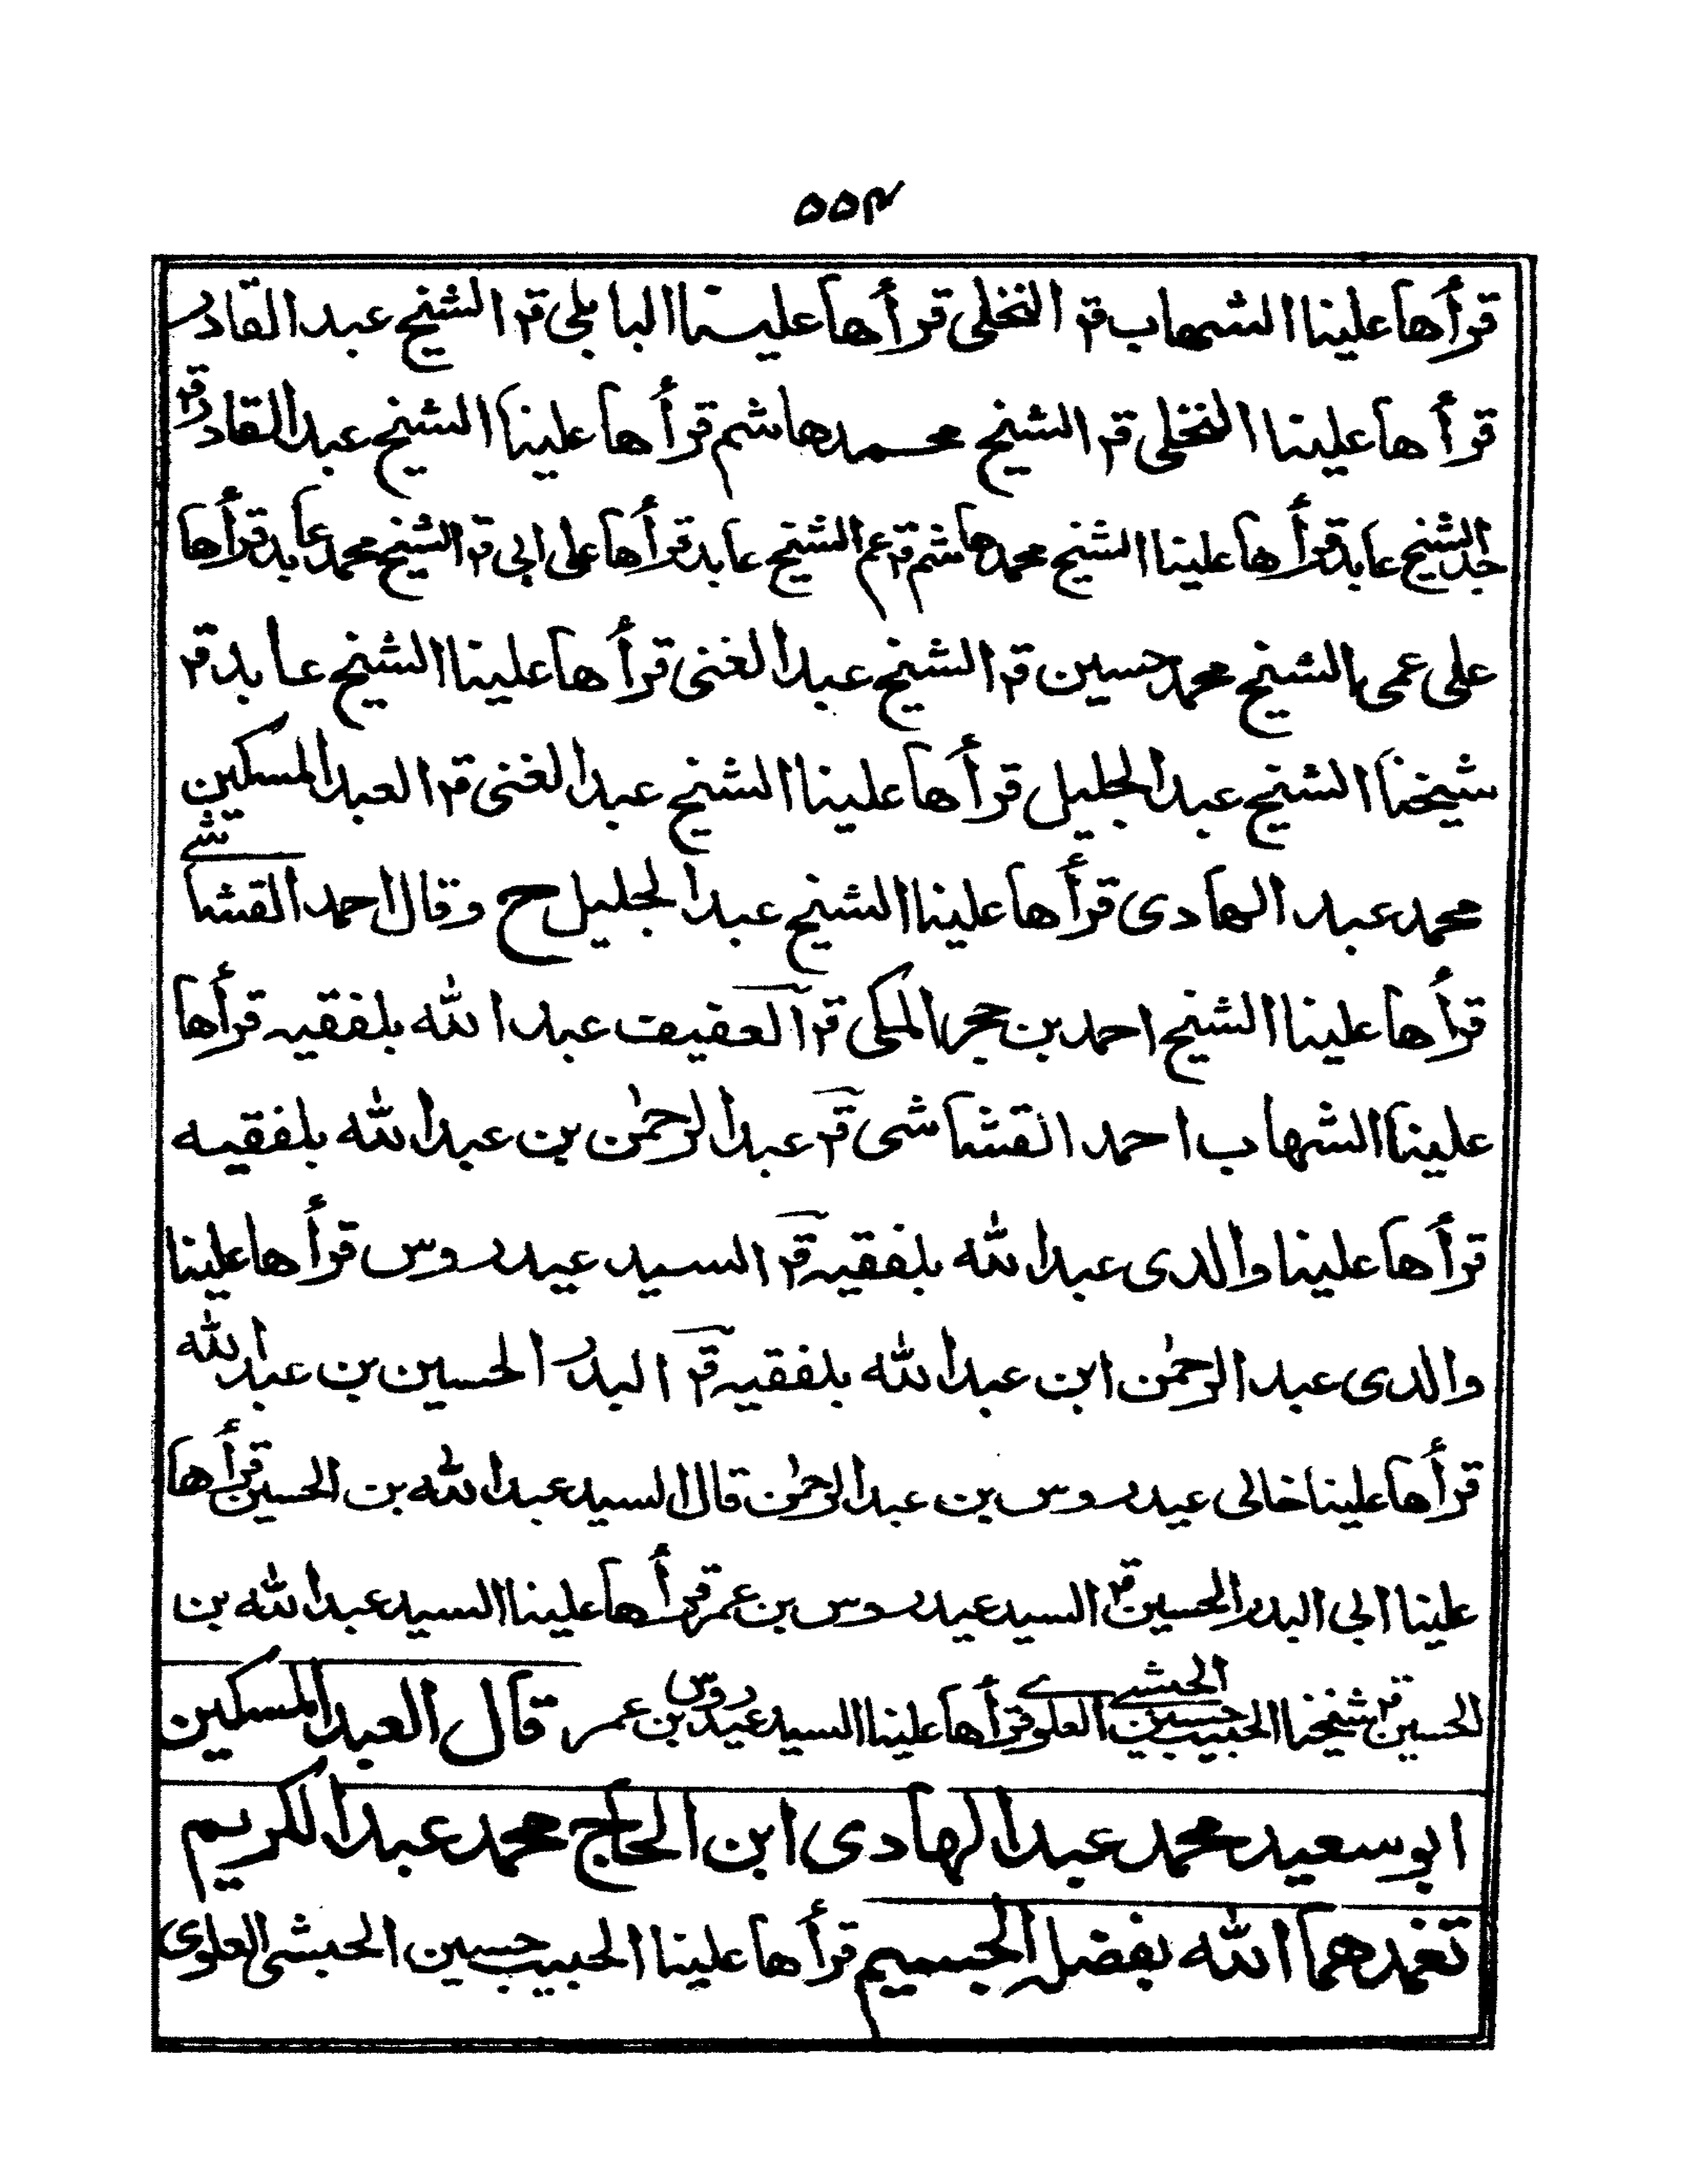 ٥٥٣
قرأها علينا الشهاب قر النخلى قرأها علينا البابلى قر الشيخ عبد القادر
قرأها علينا النخلى قر الشيخ محمد هاشم قرأها علينا الشيخ عبد القادر قر
جد الشيخ عابد قرأها علينا الشيخ محمد هاشم قر عم الشيخ عابد قرأها على ابى قر الشيخ محمد عابد قرأها
على عمى الشيخ محمد حسين قر الشيخ عبد الغنى قرأها علينا الشيخ عابد قر
شيخنا الشيخ عبد الجليل قرأها علينا الشيخ عبد الغنى قر العبد المسكين
محمد عبد الهادى قرأها علينا الشيخ عبد الجليل ح وقال احمد القشاشى
قرأها علينا الشيخ احمد بن حجر المكى قر العفيف عبد الله بلفقيه قرأها
علينا الشهاب احمد القشاشى قر عبد الرحمٰن بن عبد الله بلفقيه
قرأها علينا والدى عبد الله بلفقيه قر السيد عيدروس قرأها علينا
والدى عبد الرحمٰن ابن عبد الله بلفقيه قر البدر الحسين بن عبد الله
قرأها علينا خالى عيدروس بن عبد الرحمٰن قال السيد عبد الله بن الحسين قرأها
علينا ابى البدر الحسين قر السيد عيدروس بن عمر قرأها علينا السيد عبد الله بن
الحسين قر شيخنا الحبيب حسين الحبشى العلوى قرأها علينا السيد عيدروس بن عمر قال العبد المسكين
ابو سعيد محمد عبد الهادى ابن الحاج محمد عبد الكريم
تغمدهما الله بفضله الجسيم قرأها علينا الحبيب حسين الحبشى العلوى